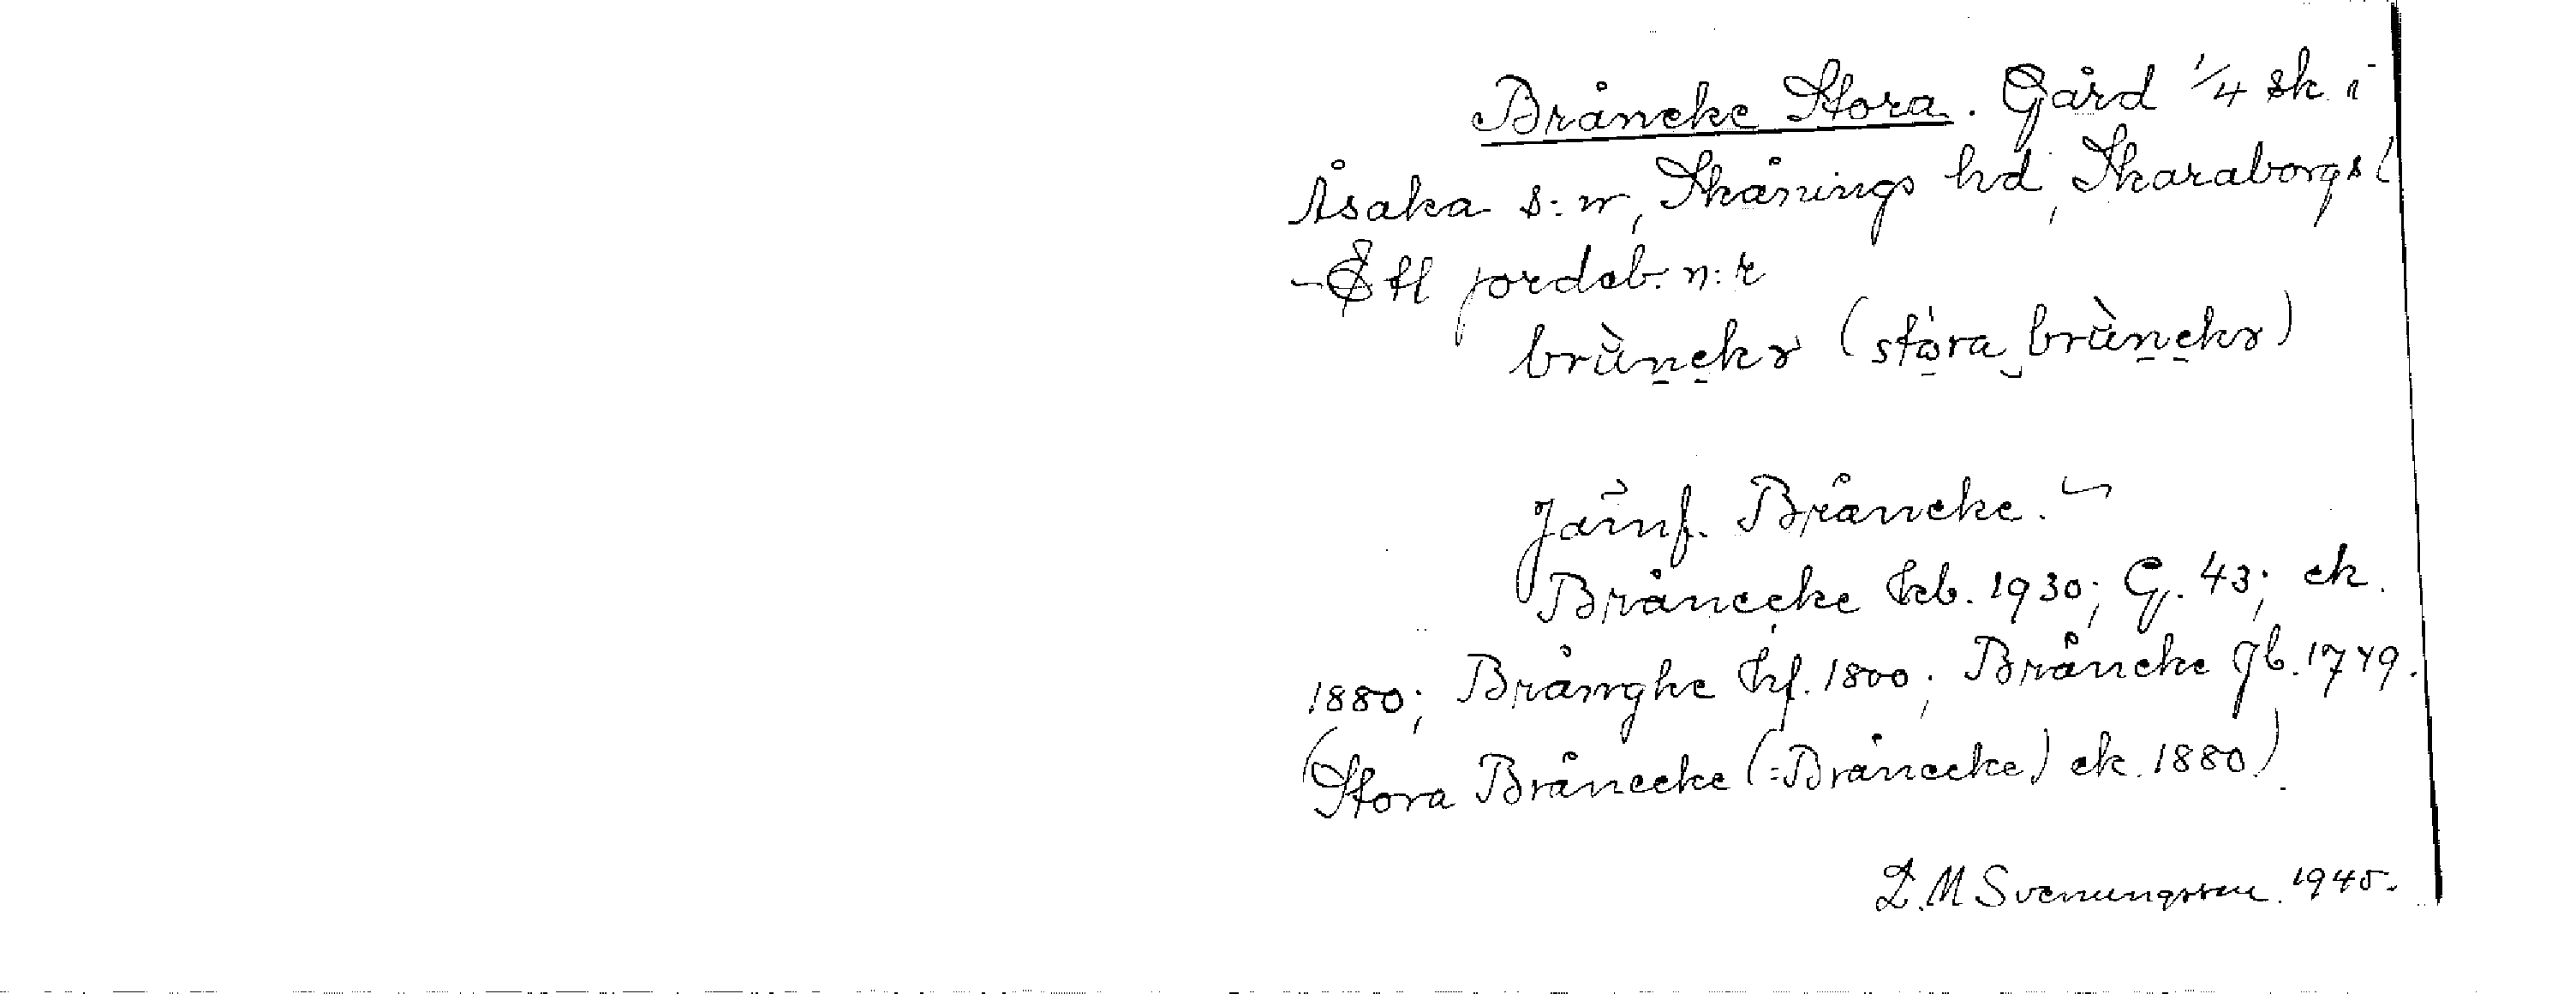 Bråneke Stora. Gård 1/4 sk i
Åsaka s:n, Skånings hd, Skaraborgs l
- Ett jordeb. n:r
brùneks (stòra brùneks)
Jämf. Bråneke.
Brånecke kb. 1930; G. 43; ek.
1880; Brånghe hf. 1800; Bråneke Jb. 1749.
(Stora Brånecke (=Brånecke) ek. 1880).
L. M Svenungsson. 1945.